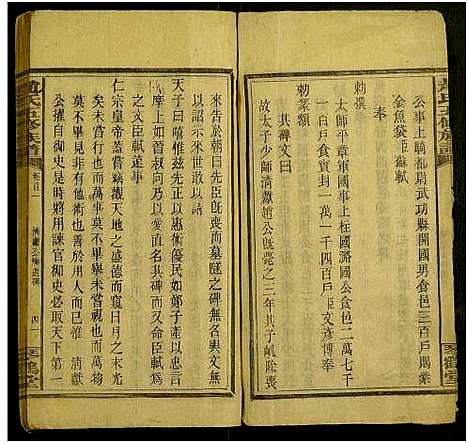 趙氏五修族譜
公事上騎都尉武功縣開國男食邑三百戶賜紫
金魚袋臣蘇軾
奉
勅撰
太師平章軍國事上柱國潞國公食邑二萬七千
一百戶食實封一萬一千四百戶臣文彥博奉
其碑文曰
故太子少師清獻趙公旣薨之三年其子㞦除喪
琴鶴堂
來告於朝曰先臣旣喪而墓隧之碑無名與文無
以詔示來世敢以請
天子曰嘻惟茲先正以惠術擾民如鄭子產以忠言
摩上如晉叔向乃以愛直名其碑而又命
之文臣軾逮事
仁宗皇帝蓋嘗竊觀天地之盛德而窺日月之末光
矣未嘗行也而萬事莫不畢舉未嘗視也而萬物
莫不畢見非有他術也善於用人而已惟清獻
公擢自御史是時將用諫官御史必取天下第一
趙氏五修族譜
卷首二
清獻公神道碑
四一
琴鶴堂